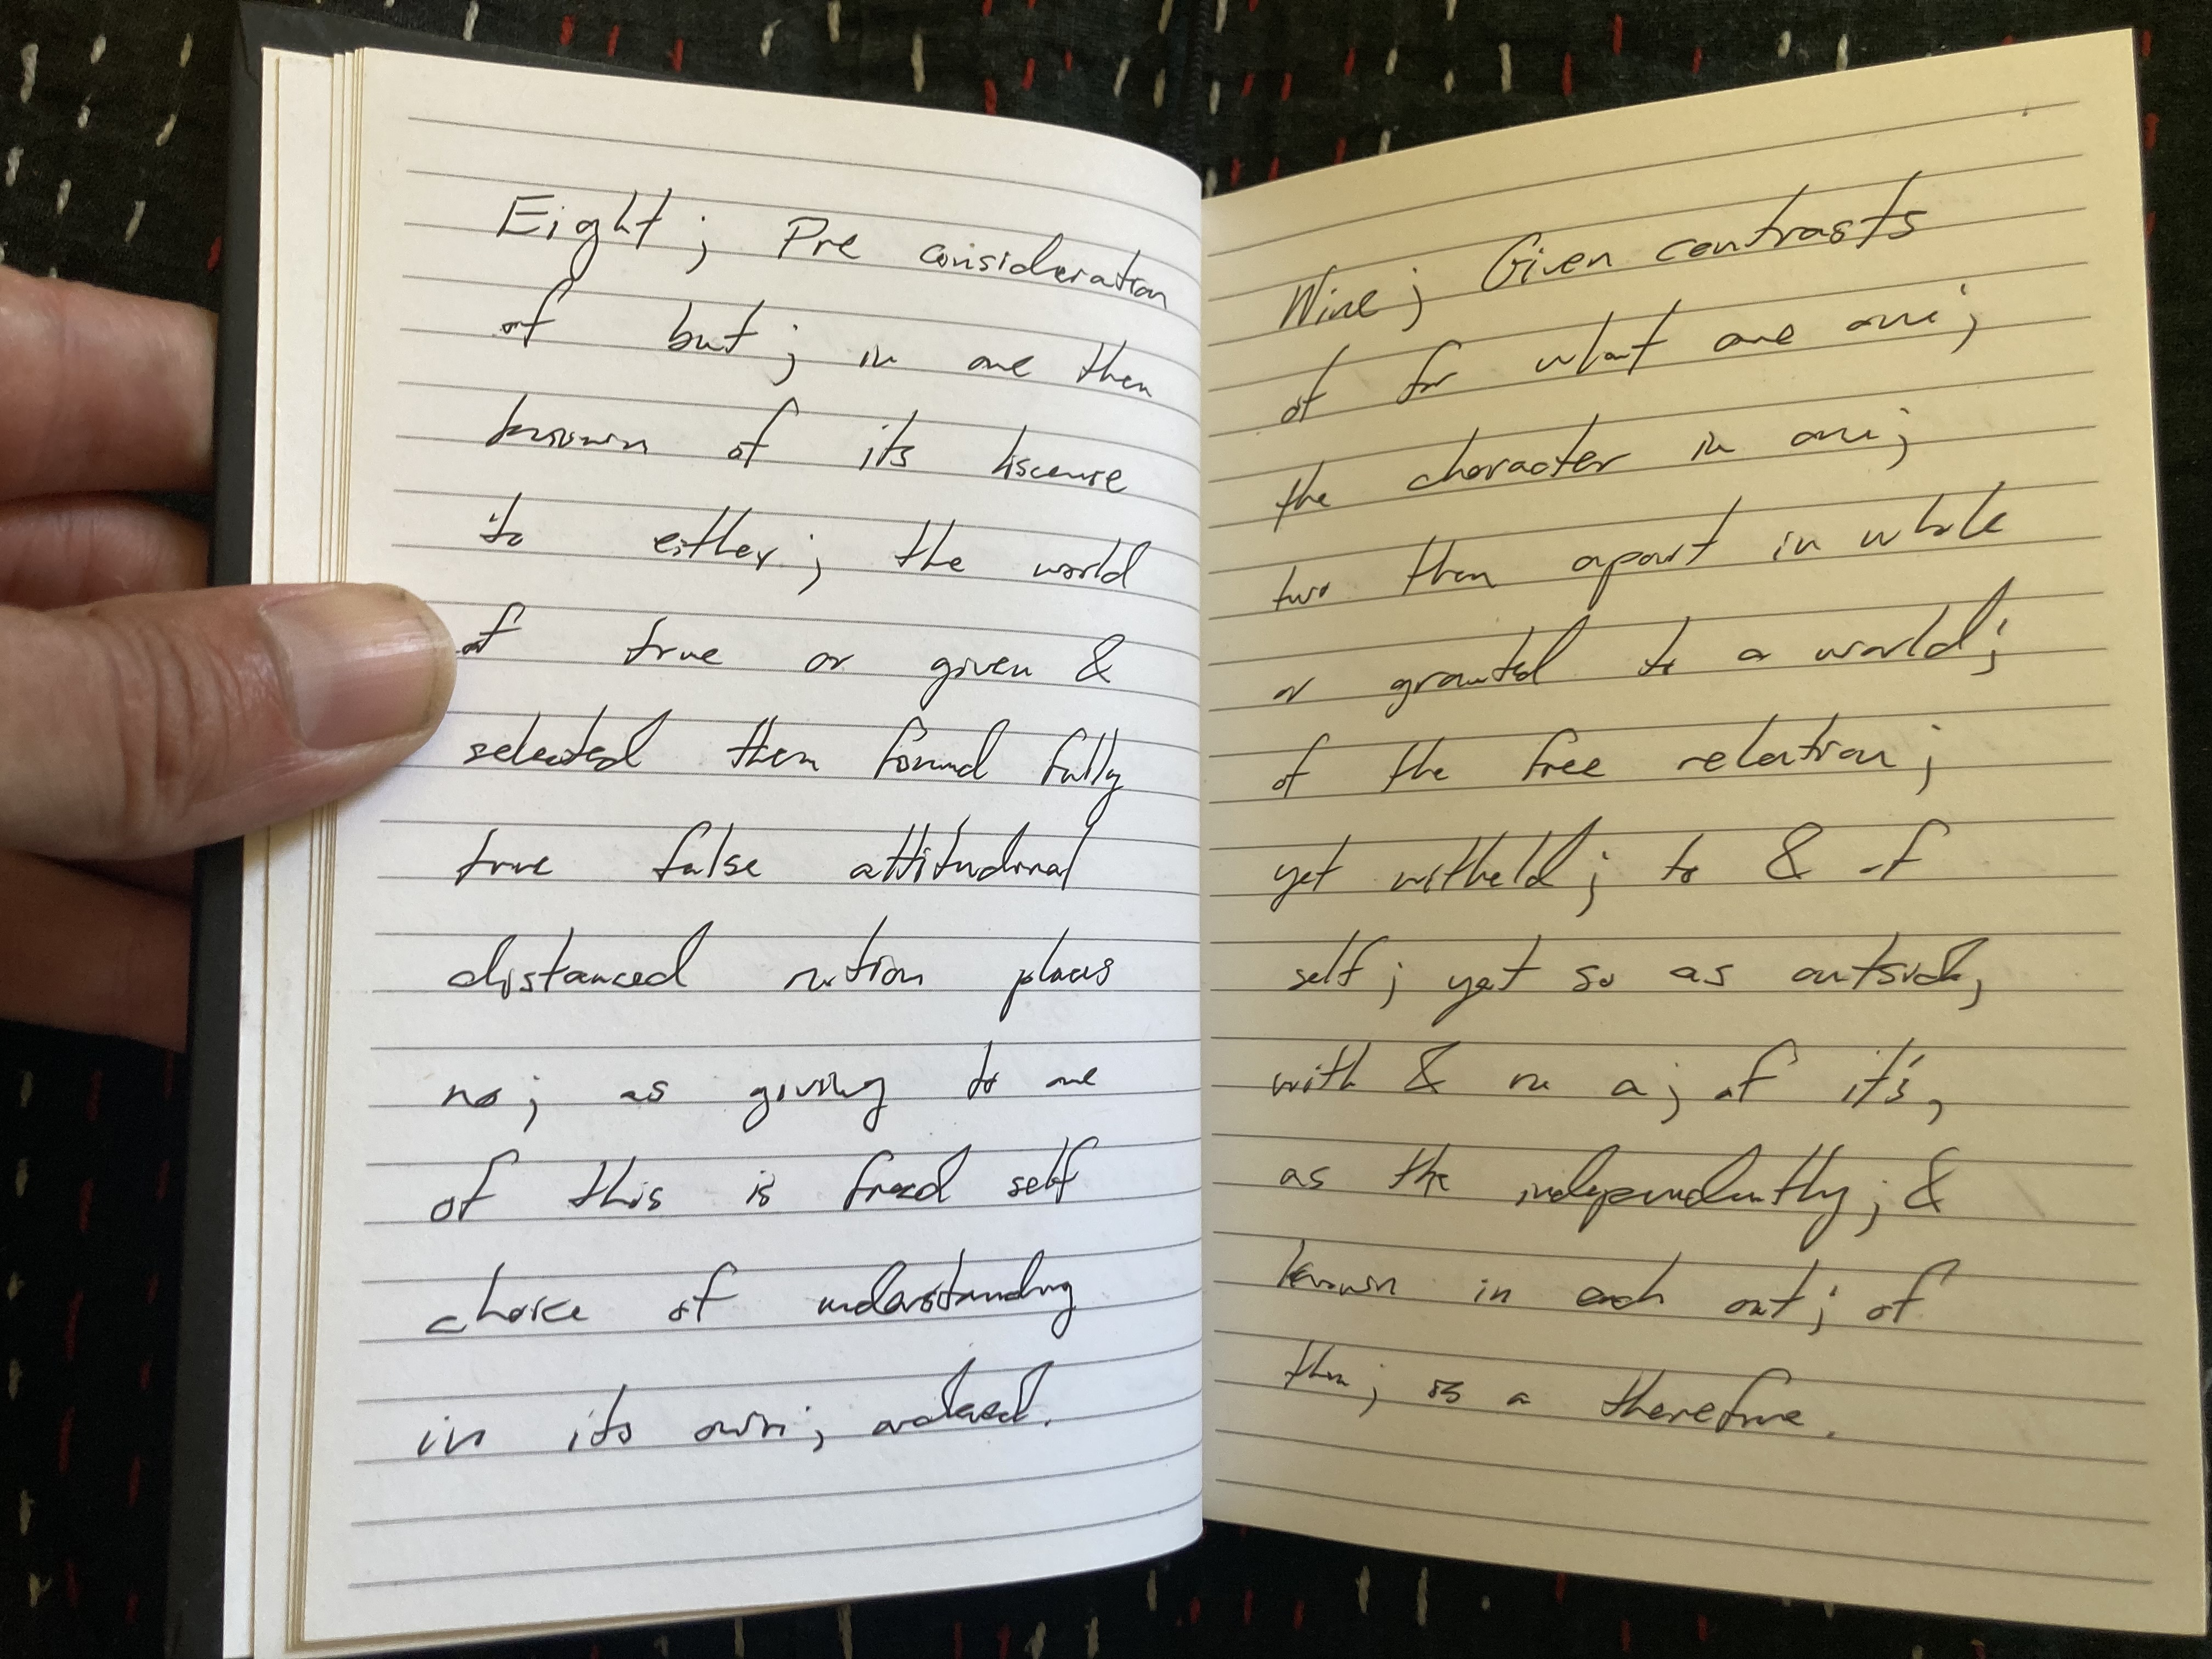 Eight; Pre consideration
of but; in one then
known of its liscense
to either; the world
of true or given &
selected then found fully
true false attitudinal
distanced notion places
no; as giving to one
of this is freed self
choice of understanding
in its own; ordered.
Nine; Given contrasts
of for what one one;
the character in one;
two then apart in whole
or granted to a world;
of the free relation;
yet witheld; to & of
self; yet so as outside,
with & on a; of it's,
as the independently; &
known in each out; of
then; is a therefore.